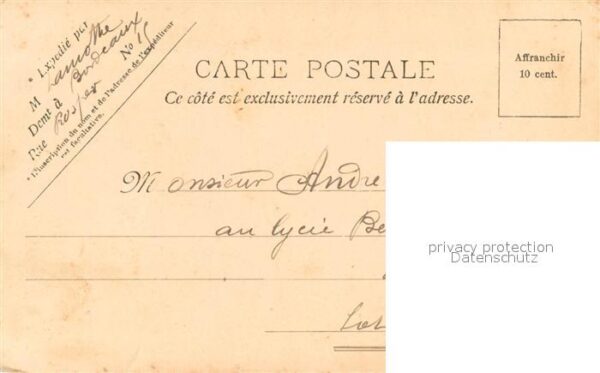 * Expédié par
M Lamothe
Demt à Bordeaux
Rue No 15
* L'inscription du nom et de l'adresse de l'expéditeur
est facultative.
CARTE POSTALE
Ce côté est exclusivement réservé à l'adresse.
Affranchir
10 cent.
Monsieur Andre
au lycée Be
privacy protection
Datenschutz
Lot